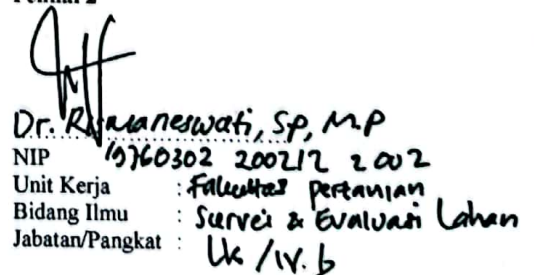 Dr. Rismaneswati, SP, M.P
NIP 19760302 200212 2 002
Unit Kerja : Fakultas pertanian
Bidang Ilmu : Survei & Evaluasi Lahan
Jabatan/Pangkat : Lk /IV. b